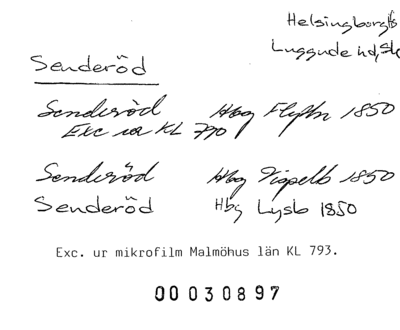 Helsingborgs
Luggude hd, Sk
Senderöd
Senderöd Hbg Flyfbr 1850
Exc ur KL 790
Senderöd Hbg 1850
Senderöd Hbg Lysb 1850
Exc. ur mikrofilm Malmöhus län KL 793.
00030897